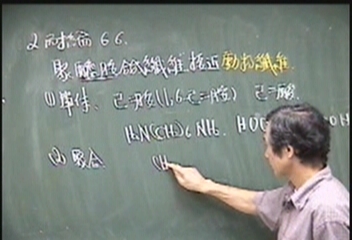 2. 耐綸 66.
聚醯胺合成纖維 接近動物纖維.
(1) 單体、己二胺(1,6-己二胺) 己二酸.
H₂N(CH₂)₆NH₂. HOO
(2) 聚合